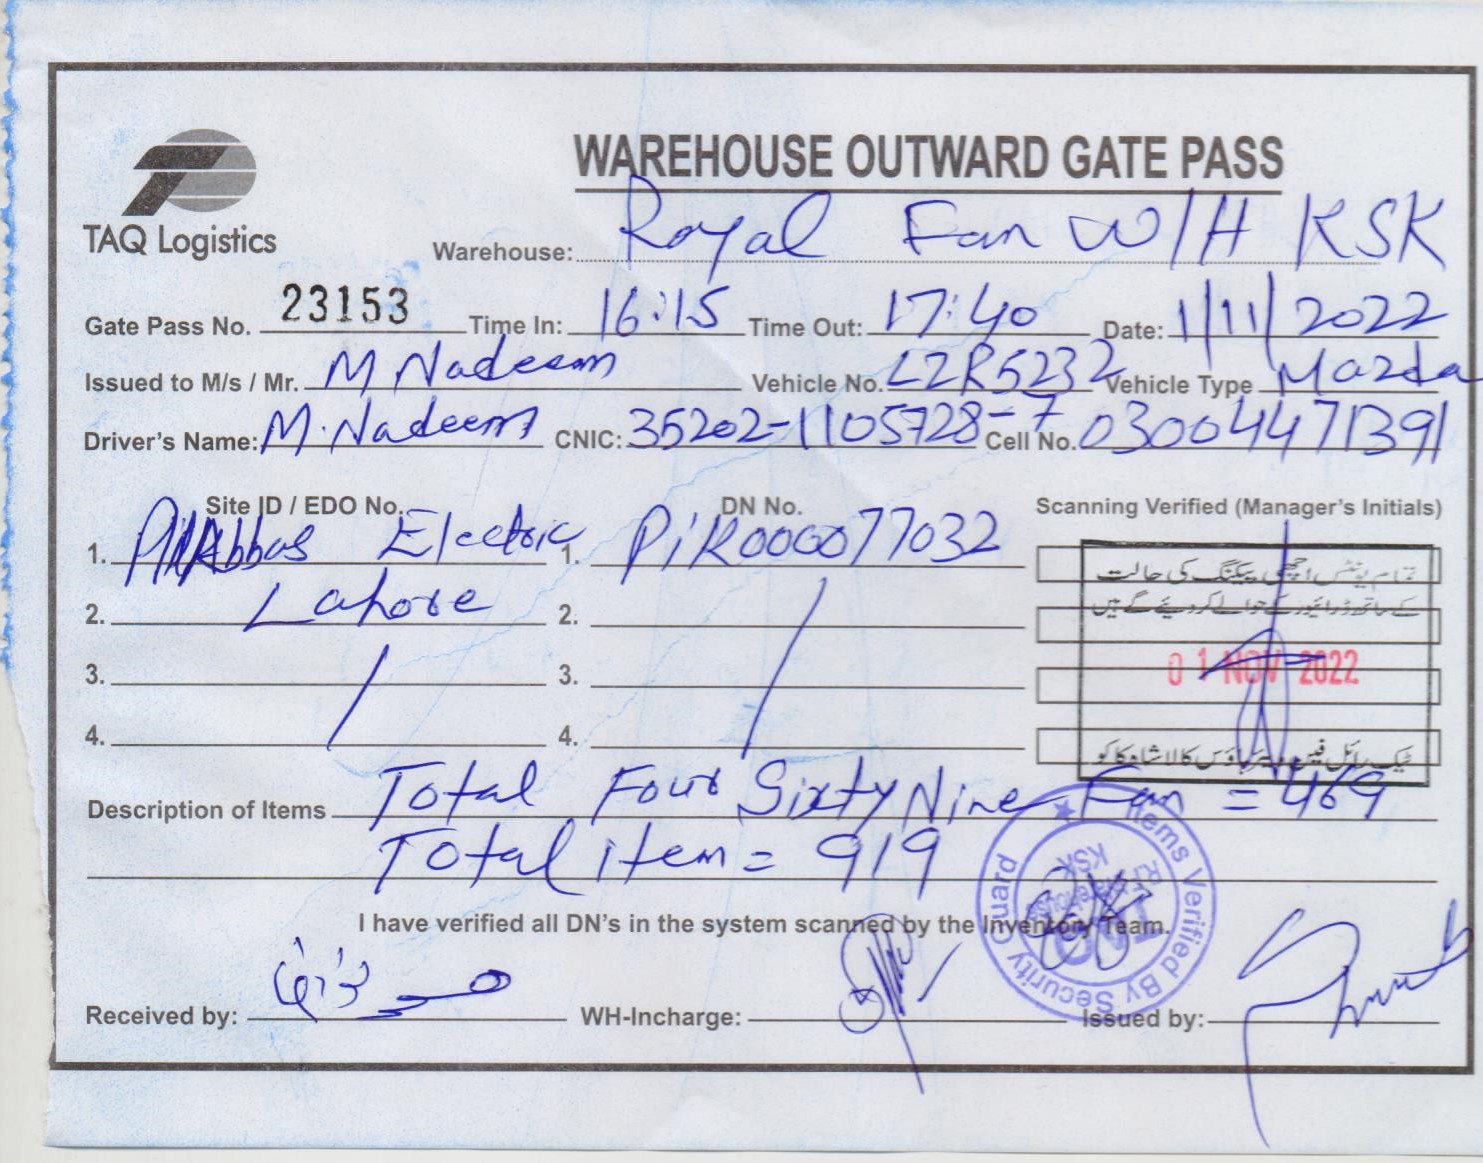 TAQ Logistics
WAREHOUSE OUTWARD GATE PASS
Warehouse: Royal Fan W/H KSK
Gate Pass No. 23153 Time In: 16:15 Time Out: 17:40 Date: 1/11/2022
Issued to M/s / Mr. M Nadeem Vehicle No. LZR5232 Vehicle Type Mazda
Driver's Name: M. Nadeem CNIC: 35202-1105728-7 Cell No. 03004471391
Site ID / EDO No. DN No. Scanning Verified (Manager's Initials)
1. Abbas Electric 1. PiR000077032
2. Lahore 2.
3. 3.
4. 4.
تمام یونٹس اچھی پیکنگ کی حالت
کے ساتھ ڈرائیور کے حوالے کر دیئے گئے ہیں
01 NOV 2022
ٹیک رائل فین ویئر ہاؤس کالا شاہ کاکو
Description of Items Total Four Sixty Nine Fan = 469
Total item = 919
I have verified all DN's in the system scanned by the Inventory Team.
Items Verified By Security Guard
KSK
Received by: WH-Incharge: Issued by: